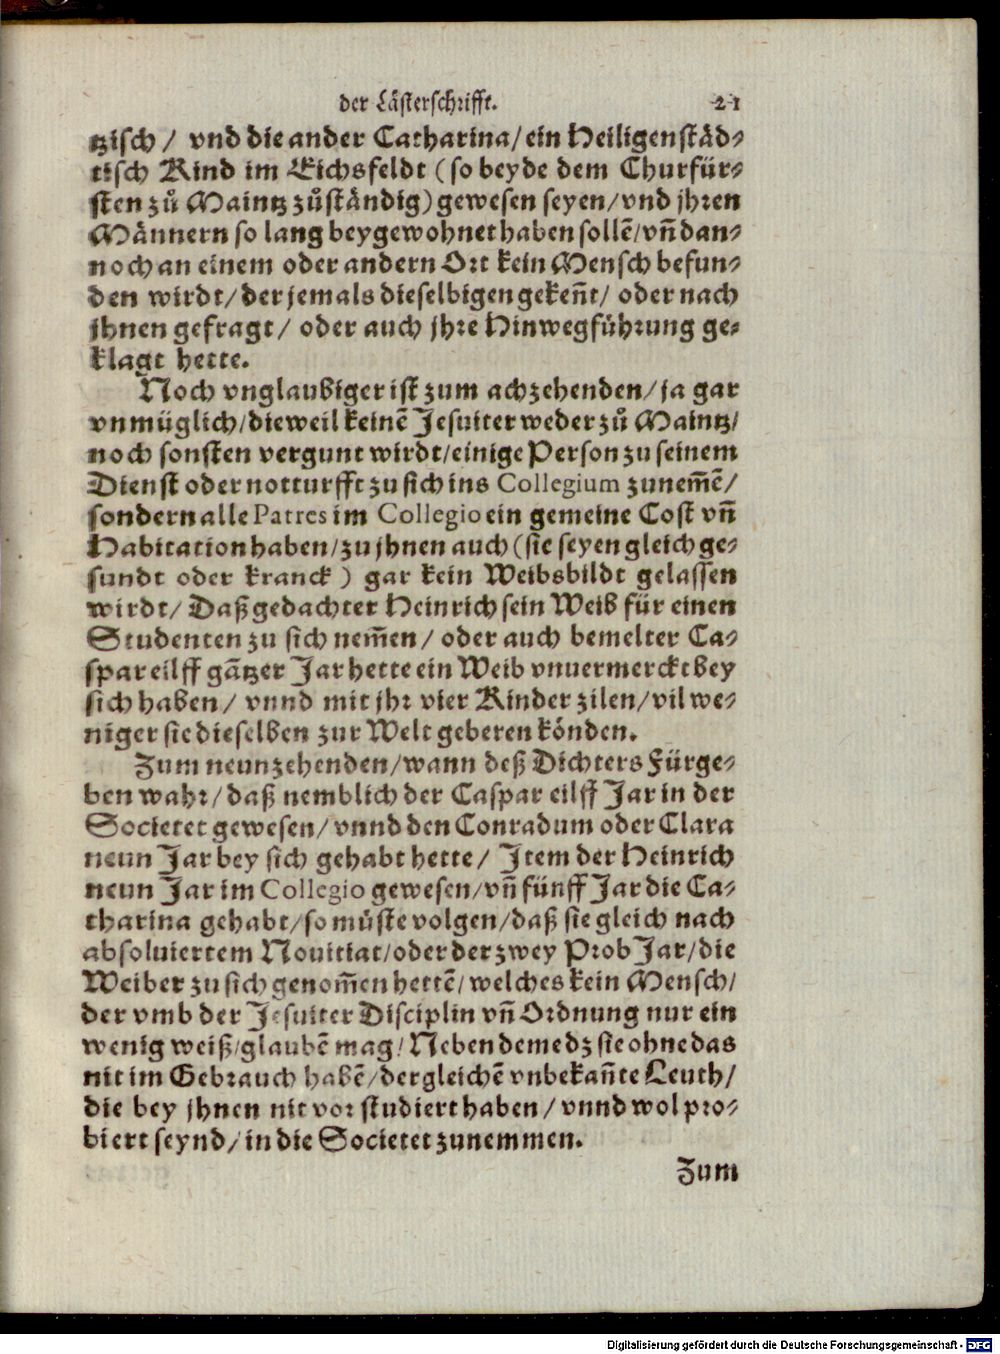 der Lästerschrifft. 21
tzisch / vnd die ander Catharina / ein Heiligenstäd⸗
tisch Kind im Eichsfeldt (so beyde dem Churfür⸗
sten zů Maintz zůständig) gewesen seyen / vnd jhren
Männern so lang beygewohnet haben sollẽ / vñ dan⸗
noch an einem oder andern Ort kein Mensch befun⸗
den wirdt / der jemals dieselbigen gekeñt / oder nach
jhnen gefragt / oder auch jhre Hinwegführung ge⸗
klagt hette.
Noch vnglaubiger ist zum achzehenden / ja gar
vnmüglich / dieweil keinẽ Jesuiter weder zů Maintz /
noch sonsten vergunt wirdt / einige Person zu seinem
Dienst oder notturfft zu sich ins Collegium zunem̃ẽ /
sondern alle Patres im Collegio ein gemeine Cost vñ
Habitation haben / zu jhnen auch (sie seyen gleich ge⸗
sundt oder kranck) gar kein Weibsbildt gelassen
wirdt / Daß gedachter Heinrich sein Weib für einen
Studenten zu sich nem̃en / oder auch bemelter Ca⸗
spar eilff gãtzer Jar hette ein Weib vnuermerckt bey
sich haben / vnnd mit jhr vier Kinder zilen / vil we⸗
niger sie dieselben zur Welt geberen könden.
Zum neunzehenden / wann deß Dichters Fürge⸗
ben wahr / daß nemblich der Caspar eilff Jar in der
Societet gewesen / vnnd den Conradum oder Clara
neun Jar bey sich gehabt hette / Item der Heinrich
neun Jar im Collegio gewesen / vñ fünff Jar die Ca⸗
tharina gehabt / so müste volgen / daß sie gleich nach
absoluiertem Nouitiat / oder der zwey Prob Jar / die
Weiber zu sich genom̃en hettẽ / welches kein Mensch /
der vmb der Jesuiter Disciplin vñ Ordnung nur ein
wenig weiß / glaubẽ mag / Neben demedz sie ohne das
nit im Gebrauch habẽ / dergleichẽ vnbekañte Leuth /
die bey jhnen nit vor studiert haben / vnnd wol pro⸗
biert seynd / in die Societet zunemmen.
Zum
Digitalisierung gefördert durch die Deutsche Forschungsgemeinschaft - DFG